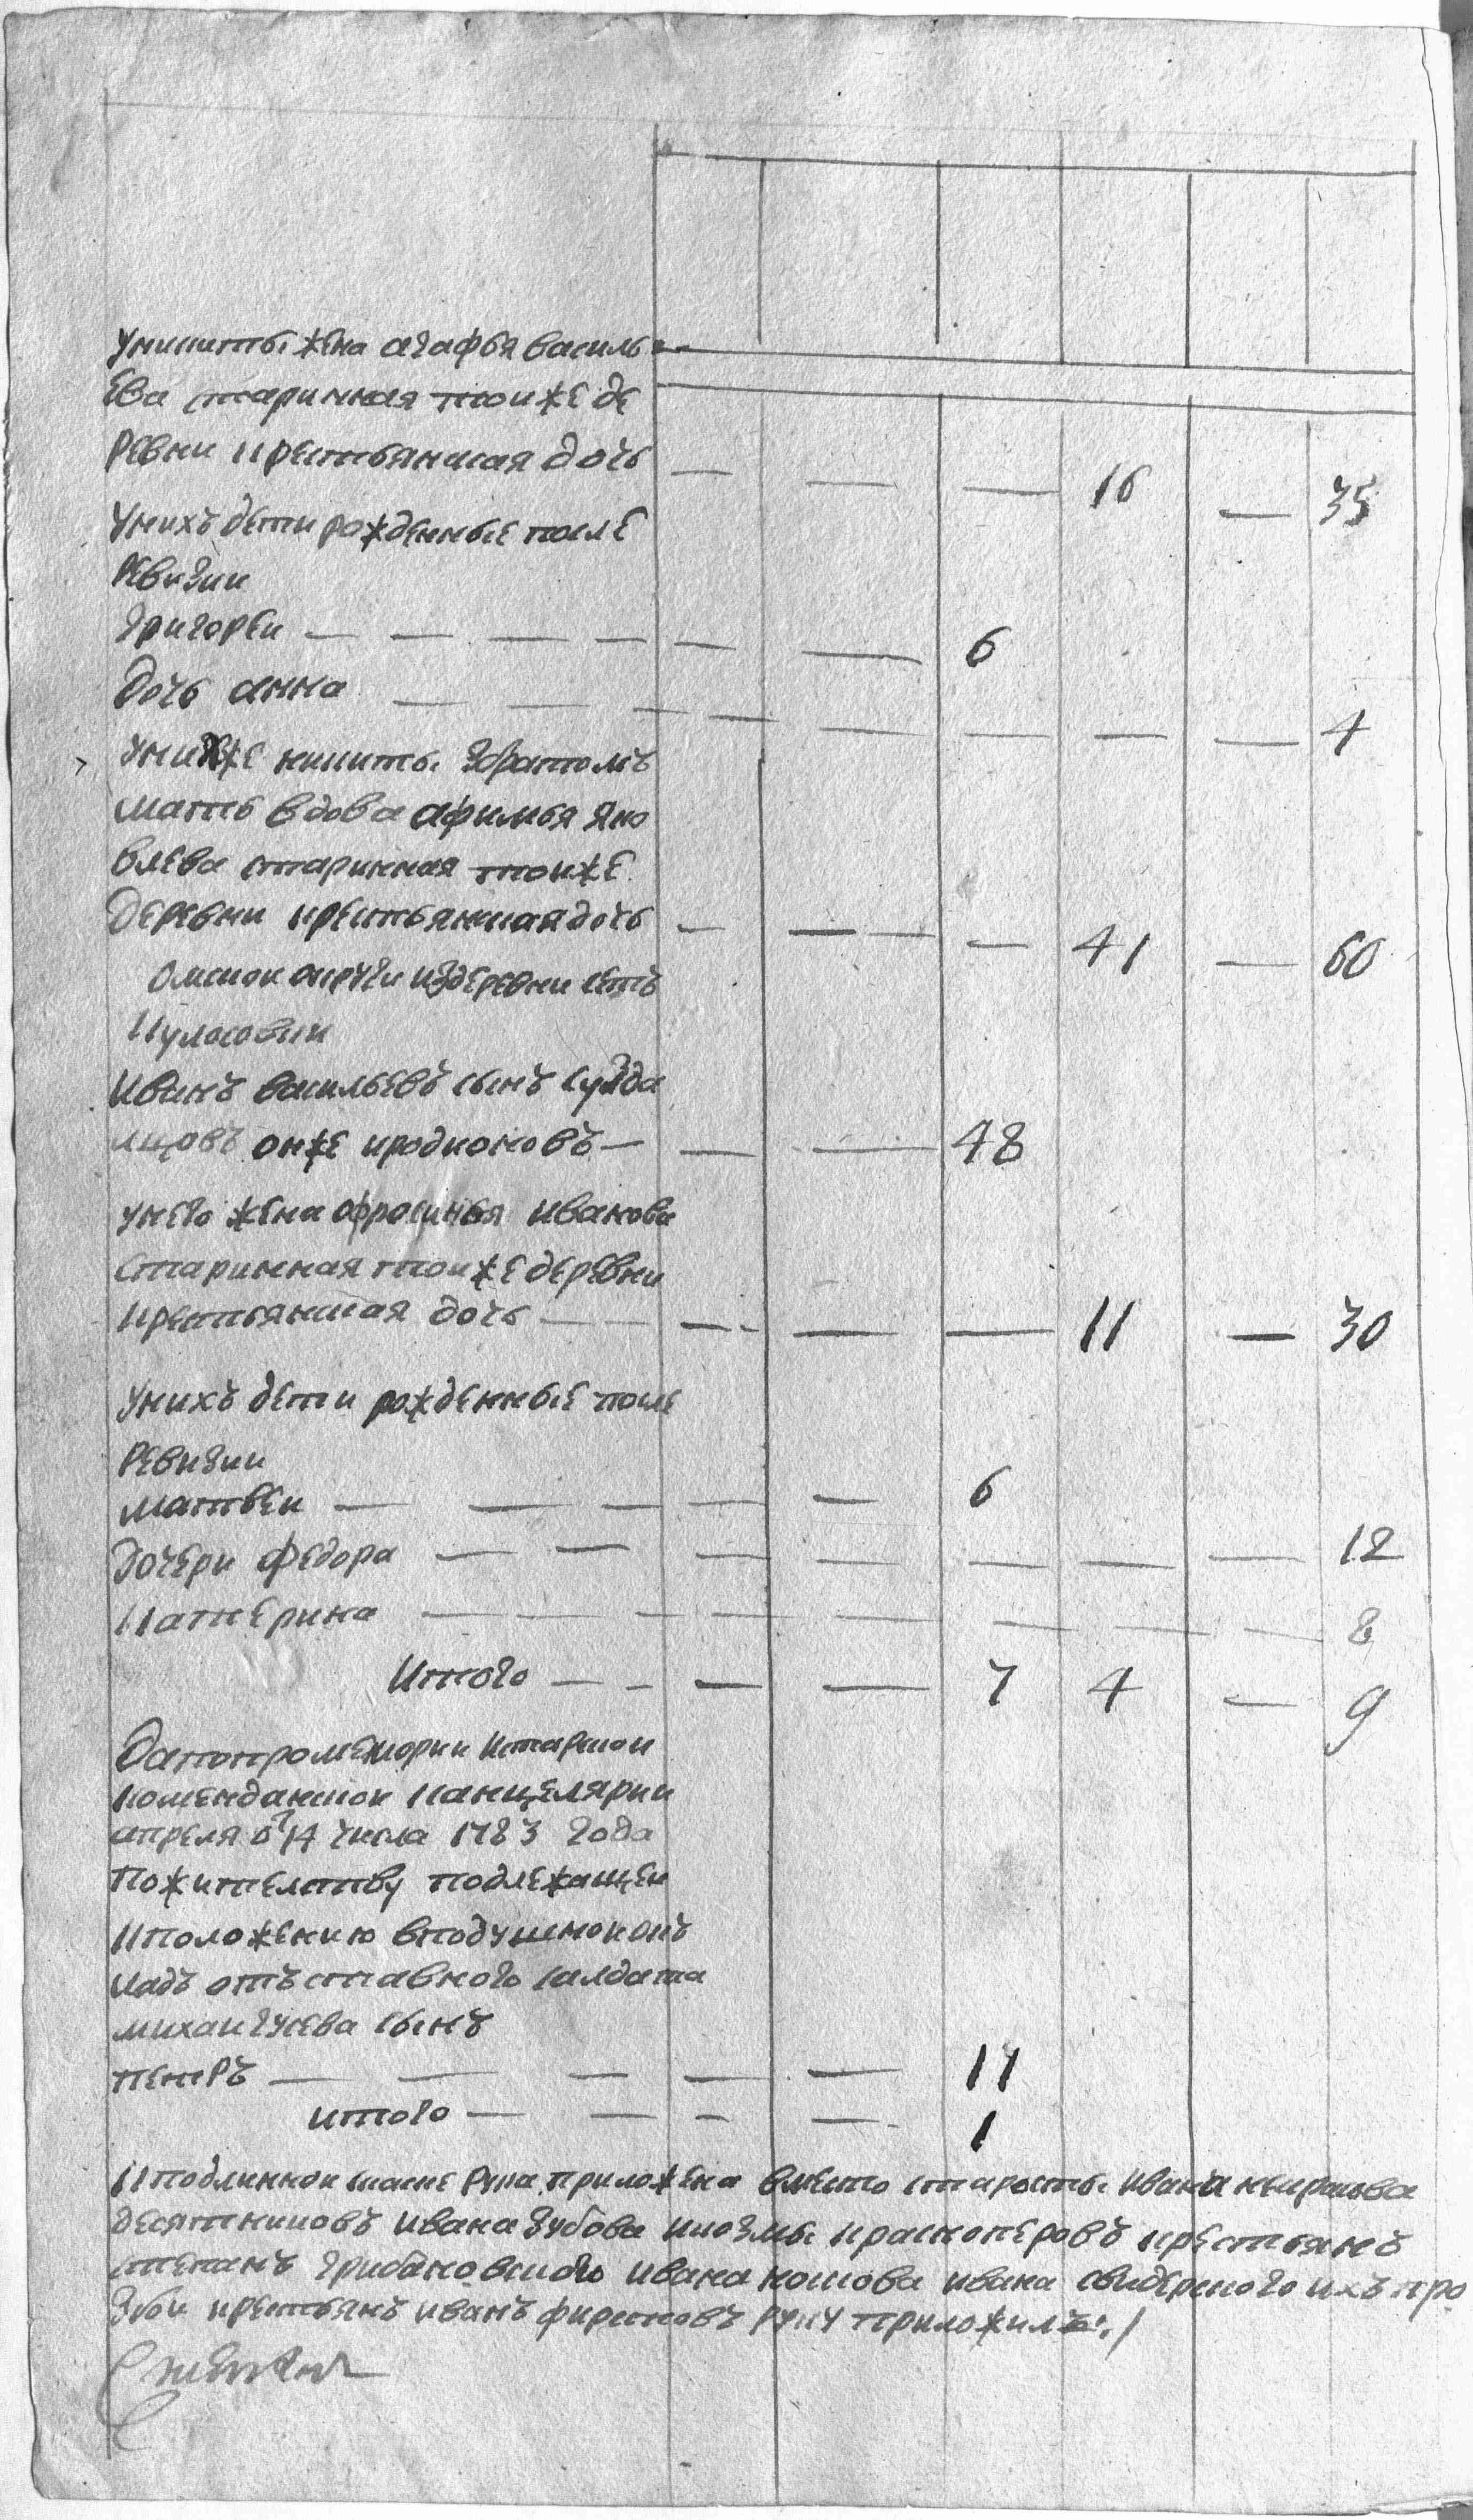 уникиты жена агафья василь
ева старинная тоиже де
ревни крестьянская дочь — — — 16 — 35
унихъ дети рожденные после
ревизии
григореи — — — — — — 6
дочь анна — — — — — — — — 4
унихже никиты збратомъ
мать вдова афимья яко
влева старинная тоиже
деревни крестьянская дочь — — — — 41 — 60
омскои округи издеревни сетъ
куласовки
Иванъ васильевъ сынъ сузда
лцовъ онже иродионовъ — — — 48
унего жена офросинья иванова
старинная тоиже деревни
крестьянская дочь — — — — — — 11 — 30
унихъ дети рожденные после
ревизии
матвеи — — — — — 6
дочери федора — — — — — — — 12
катерина — — — — — — — — 8
Итого — — — — 7 4 — 9
Дапопромемории Итарской
комендантскои канцелярии
апреля от 14 числа 1783 года
пожителству подлежащеи
кположению вподушнои о
кладъ отъставного салдата
михаи гусева сынъ
петръ — — — — — 11
итого — — — — 1
кподлиннои скаске рука приложена вместо старосты Ивана
десятниковъ ивана зубова икозмы красноперовъ крестьянъ
степанъ грибановского ивана кошова ивана свидерского ихъ про
збои крестьянъ иванъ фирстовъ руку приложилъ:/